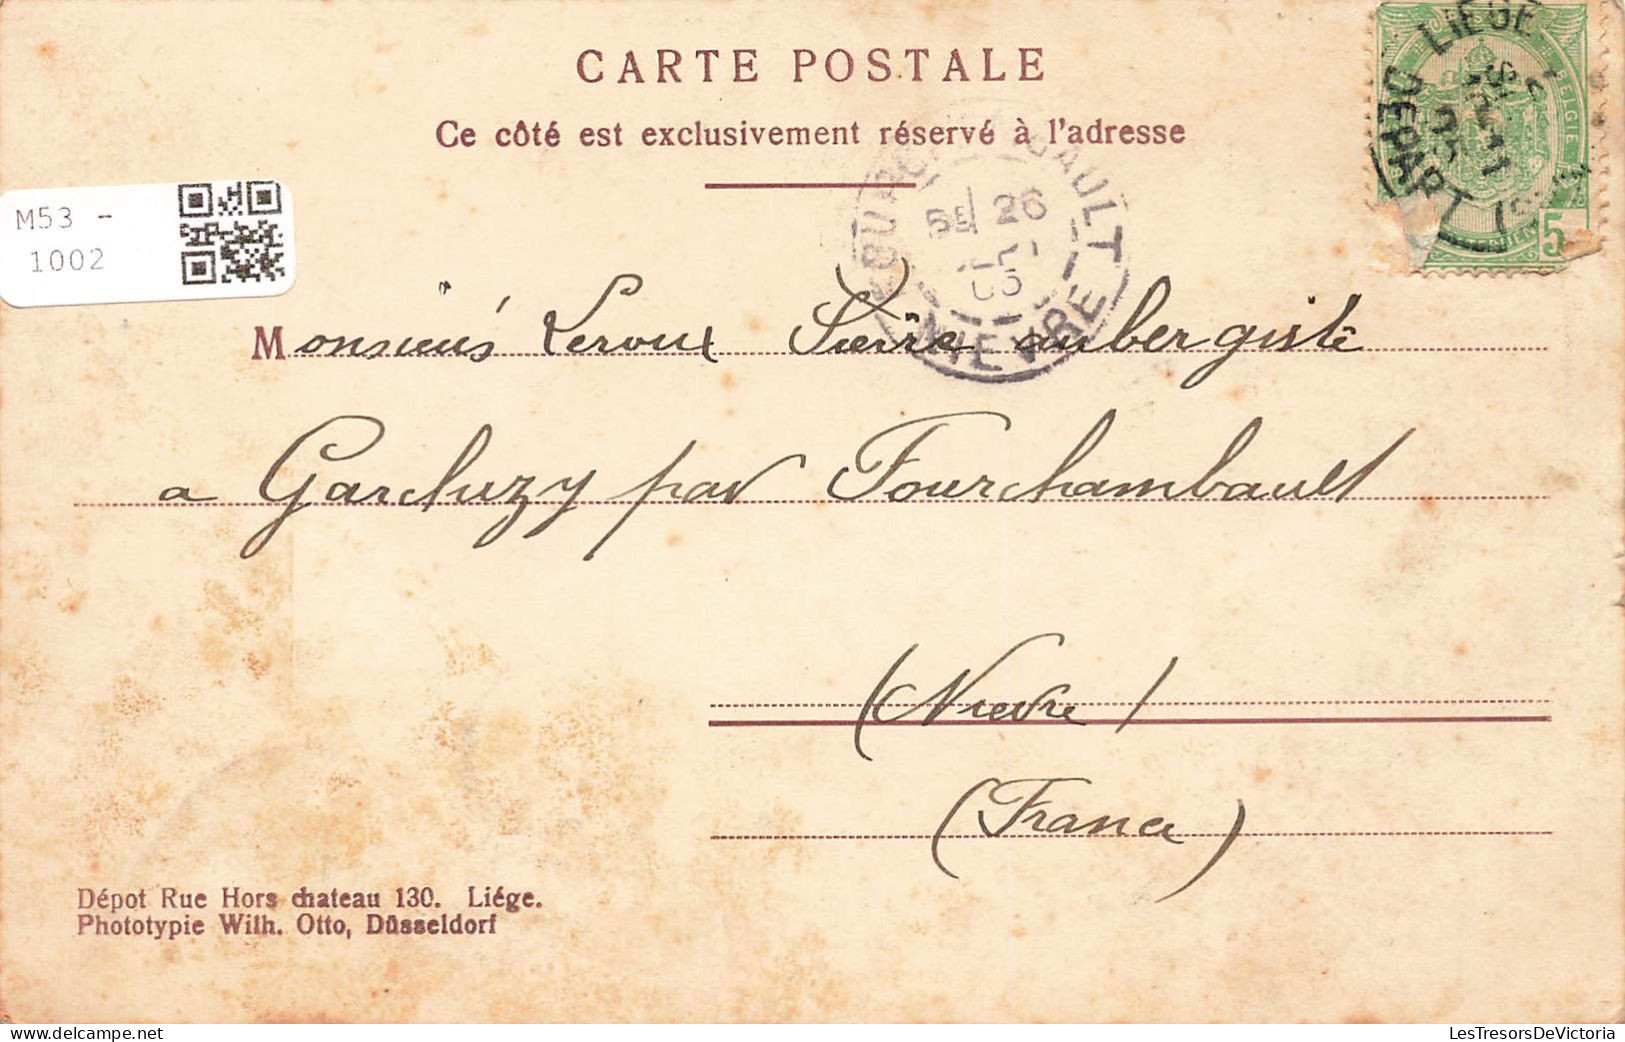 CARTE POSTALE
Ce côté est exclusivement réservé à l'adresse
LIEGE
DEPART
BELGIE
5
M53 -
1002
BAULT
26
05
NIEVRE
Monsieur Leroux Pierre aubergiste
a Garchizy par Fourchambault
(Nievre)
(France)
Dépot Rue Hors chateau 130. Liége.
Phototypie Wilh. Otto, Düsseldorf
LesTresorsDeVictoria.com